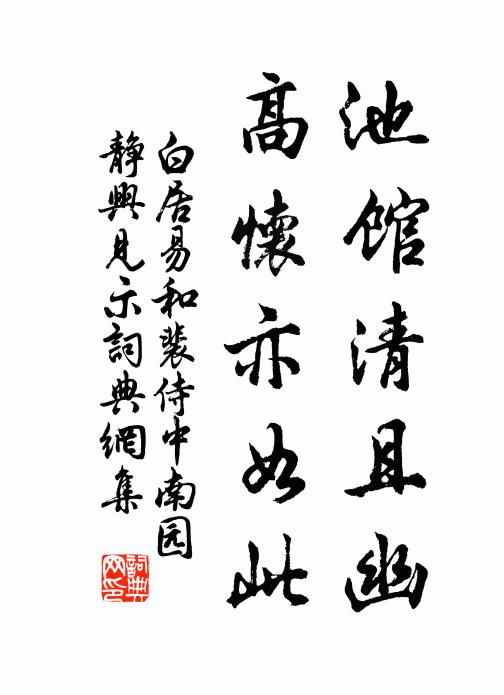 池馆清且幽
高懷亦如此
白居易和裴侍中南园
靜興見示詞典網集
詞典
网印